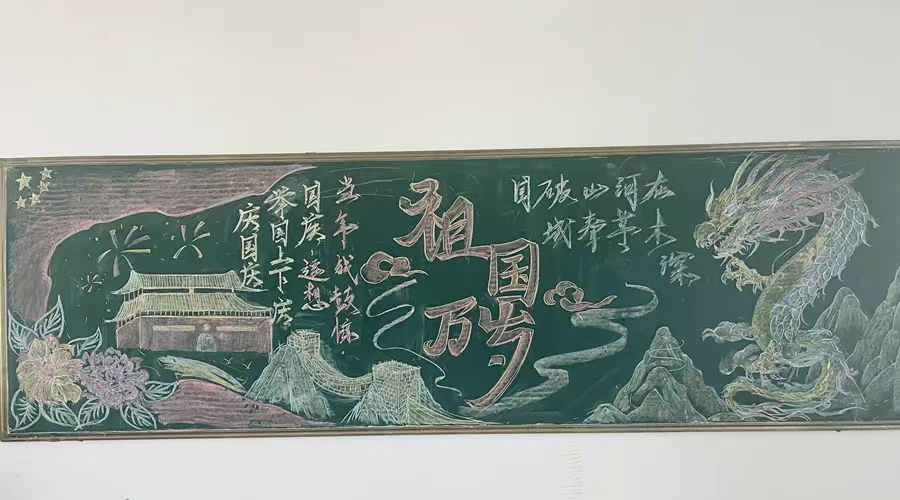 庆国庆
举国上下庆
国庆遥想
当年战鼓惊
祖国
万岁
国破山河在
城春草木深